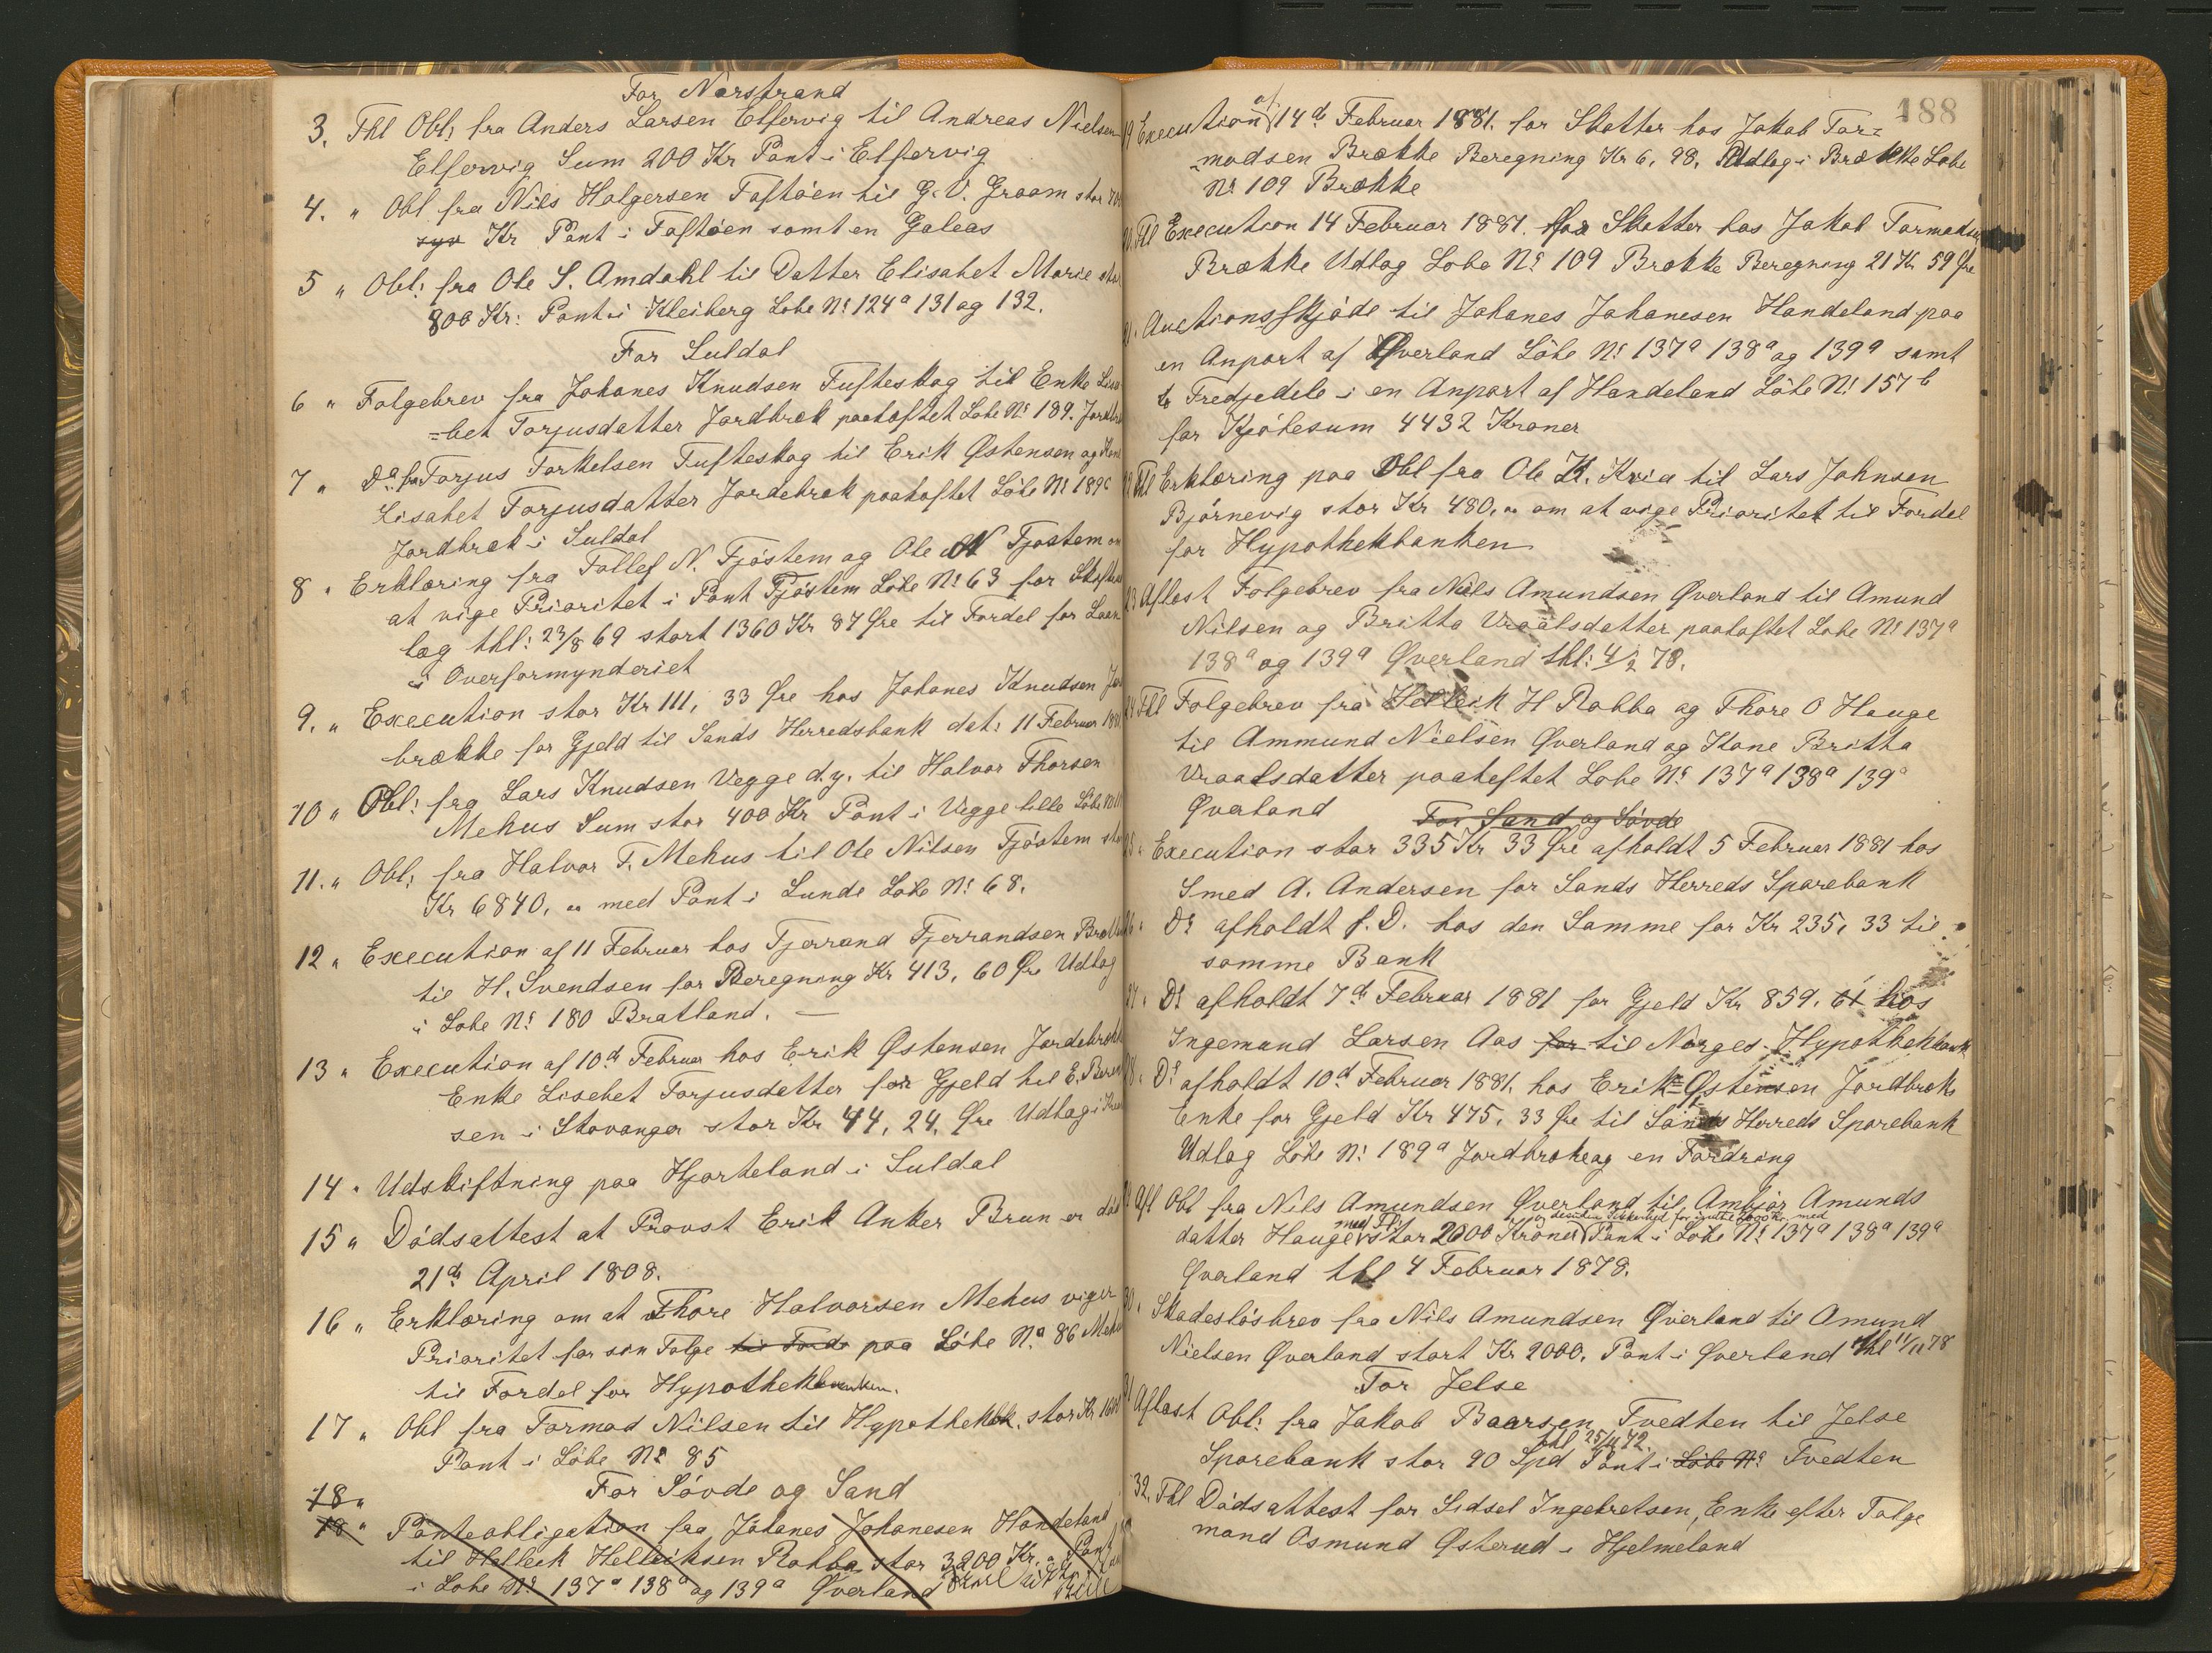 For Nærstrand
3. Thl Obl: fra Anders Larsen Elfervig til Andreas Nielsen
Elfervig Sum 200 Kr Pant i Elfervig
4. " Obl fra Nils Holgersen Toftøen til G. V. Graam stor 700
syv Kr Pant i Toftøen samt en Galeas
5 " Obl: fra Ole S. Amdahl til Datter Elisabet Marie stor
800 Kr: Pant i Kleiberg Løbe No 124a 131 og 132.
For Suldal
6 " Folgebrev fra Johanes Knudsen Tufteskog til Enke Lisa
=bet Torjusdatter Jordbræk paaheftet Løbe No 189. Jordbræk
7 " Do fra Torjus Torkelsen Tufteskog til Erik Østensen og Kone
Lisabet Torjusdatter Jordebræk paaheftet Løbe No 189c
Jordbræk i Suldal
8 " Erklæring fra Tollef N. Fjøstem og Ole N Fjøstem om
at vige Prioritet i Pant Fjøstem Løbe No 63 for
lag thl: 23/8 69 stort 1360 Kr 87 Øre til Fordel for Laan
i Overformynderiet
9. " Execution stor Kr 111, 33 Øre hos Johanes Knudsen Jor
brække for Gjeld til Sands Herredsbank dat: 11 Februar 1881
10 " Obl: fra Lars Knudsen Vegge d.y. til Halvor Thorsen
Mehus Sum stor 400 Kr Pant i Vegge lille Løbe No
11. " Obl: fra Halvor T. Mehus til Ole Nilsen Fjøstem stor
Kr 6840, " med Pant i Lunde Løbe No 68.
12 " Execution af 11 Februar hos Tjerrand Tjerrandsen Bratland
til H. Svendsen for Beregning Kr 413, 60 Øre Udlag
i Løbe No 180 Bratland. —
13 " Execution af 10de Februar hos Erik Østensen Jordebræk
Enke Lisebet Torjusdatter for Gjeld til E. Beren
sen i Stavanger stor Kr 44, 24, Øre Udlag i
14 " Udskiftning paa Hjorteland i Suldal
15 " Dødsattest at Provst Erik Anker Brun er død
21de April 1808.
16 " Erklæring om at Thore Halvorsen Mehus viger
Prioritet for sin Folge til Forde paa Løbe No 86 Mehus
til Fordel for Hypothekbanken.
17 " Obl fra Tormod Nilsen til Hypothekbk. stor Kr 1600
Pant i Løbe No 85
For Søvde og Sand
18 "
18 " Panteobligation fra Johanes Johanesen Handeland
til Helleik Helleiksen Rabba stor 3200 Kr. " Pant
i Løbe No 137a 138a og 139a Øverland
188
19 Execution af 14de Februar 1881. for Skatter hos Jakob Tor=
modsen Brække Beregning Kr 6, 98, Udlag i Brække Løbe
No 109 Brække
20. Thl Execution 14 Februar 1881. for Skatter hos Jakob Tormodsen
Brække Udlag Løbe No 109 Brække Beregning 21 Kr 59 Øre
21. Auctionsskjøde til Johanes Johanesen Handeland paa
en Anpart af Øverland Løbe No 137a 138a og 139a samt
to Tredjedele i en Anpart af Handeland Løbe No 157b
for Kjøbesum 4432 Kroner
22 Thl Erklæring paa Obl fra Ole K. Kvia til Lars Johnsen
Bjørnevig stor Kr 480, " om at vige Prioritet til Fordel
for Hypothekbanken
23 Aflæst Folgebrev fra Niels Amundsen Øverland til Amund
Nilsen og Britta Vraalsdatter paaheftet Løbe No 137a
138a og 139a Øverland thl: 4/2 78.
24 Thl Folgebrev fra Helleik H Rabba og Thore O Hauge
til Ammund Nielsen Øverland og Kone Britha
Vraalsdatter paaheftet Løbe No 137a 138a 139a
Øverland For Sand og Søvde
25 " Execution stor 335 Kr 33 Øre afholdt 5 Februar 1881 hos
Smed A. Andersen for Sands Herreds Sparebank
26 " Do afholdt s. D. hos den Samme for Kr 235, 33 til
samme Bank
27 " Do afholdt 7de Februar 1881 for Gjeld Kr 859, 61 hos
Ingemund Larsen Aas for til Norges Hypothekbank
28 " Do afholdt 10d Februar 1881. hos Erik Østensen Jordbræks
Enke for Gjeld Kr 475, 33 Øre til Sands Herreds Sparebank
Udlag Løbe No 189a Jordbræk og en Fordring
29 Afl Obl fra Nils Amundsen Øverland til Ambjør Amunds
datter Hauge stor 2000 Kroner Pant i Løbe No 137a 138a 139a
Øverland thl 4 Februar 1878.
30 " Skadesløsbrev fra Nils Amundsen Øverland til Amund
Nielsen Øverland stort Kr 2000, Pant i Øverland thl 11/11 78
For Jelse
31 Aflæst Obl: fra Jakob Baarsen Tvedten til Jelse
thl 25/11 72.
Sparebank stor 90 Spd Pant i Løbe No Tvedten
32. Thl Dødsattest for Sidsel Ingebretsen, Enke efter Folge
mand Osmund Østerud i Hjelmeland